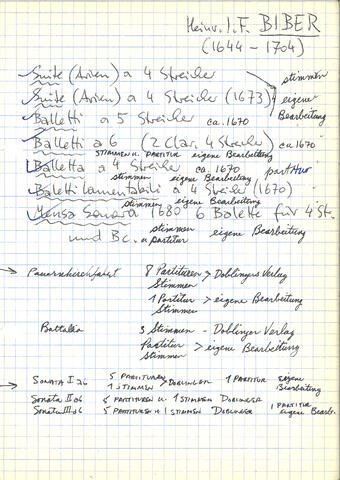 Heinr. I. F. BIBER
(1644 - 1704)
Suite (Arien) a 4 Streicher stimmen
Suite (Arien) a 4 Streicher (1673) eigene
Bearbeitung
Balletti a 5 Streicher ca. 1670
Balletti a 6 (2 Clar, 4 Streicher) ca. 1670
STIMMEN U. PARTITUR eigene Bearbeitung
Balletta a 4 Streicher ca. 1670
stimmen eigene Bearbeitung
Baletti lamentabili a 4 Streicher (1670)
stimmen eigene Bearbeitung
Mensa Sonora 1680 6 Balette für 4 St.
stimmen eigene Bearbeitung
und Bc. partitur
Pauernkirchfahrt 8 Partituren > Doblinger Verlag
Stimmen
1 Partitur > eigene Bearbeitung
Stimmen
Battalia 3 Stimmen - Doblinger Verlag
Partitur > eigene Bearbeitung
Stimmen
SONATA I a6 5 PARTITUREN > DOBLINGER 1 PARTITUR eigene
1 STIMMEN Bearbeitung
Sonata II a6 5 PARTITUREN U. 1 STIMMEN DOBLINGER
Sonata III a6 5 PARTITUREN U 1 STIMMEN DOBLINGER 1 PARTITUR
eigene Bearb.